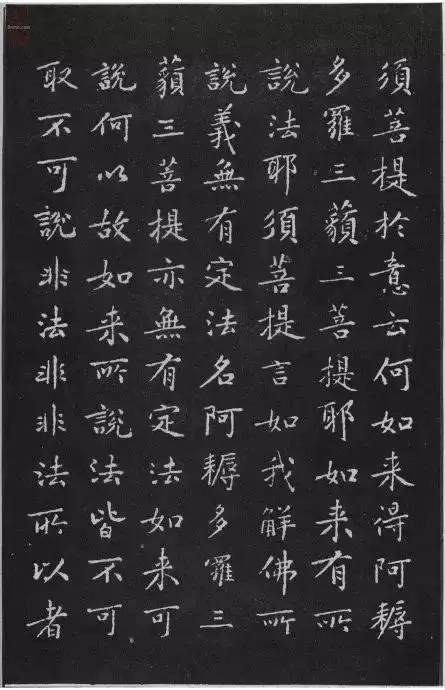 須菩提於意云何如来得阿耨
多羅三藐三菩提耶如来有所
說法耶須菩提言如我解佛所
說義無有定法名阿耨多羅三
藐三菩提亦無有定法如来可
說何以故如来所說法皆不可
取不可說非法非非法所以者